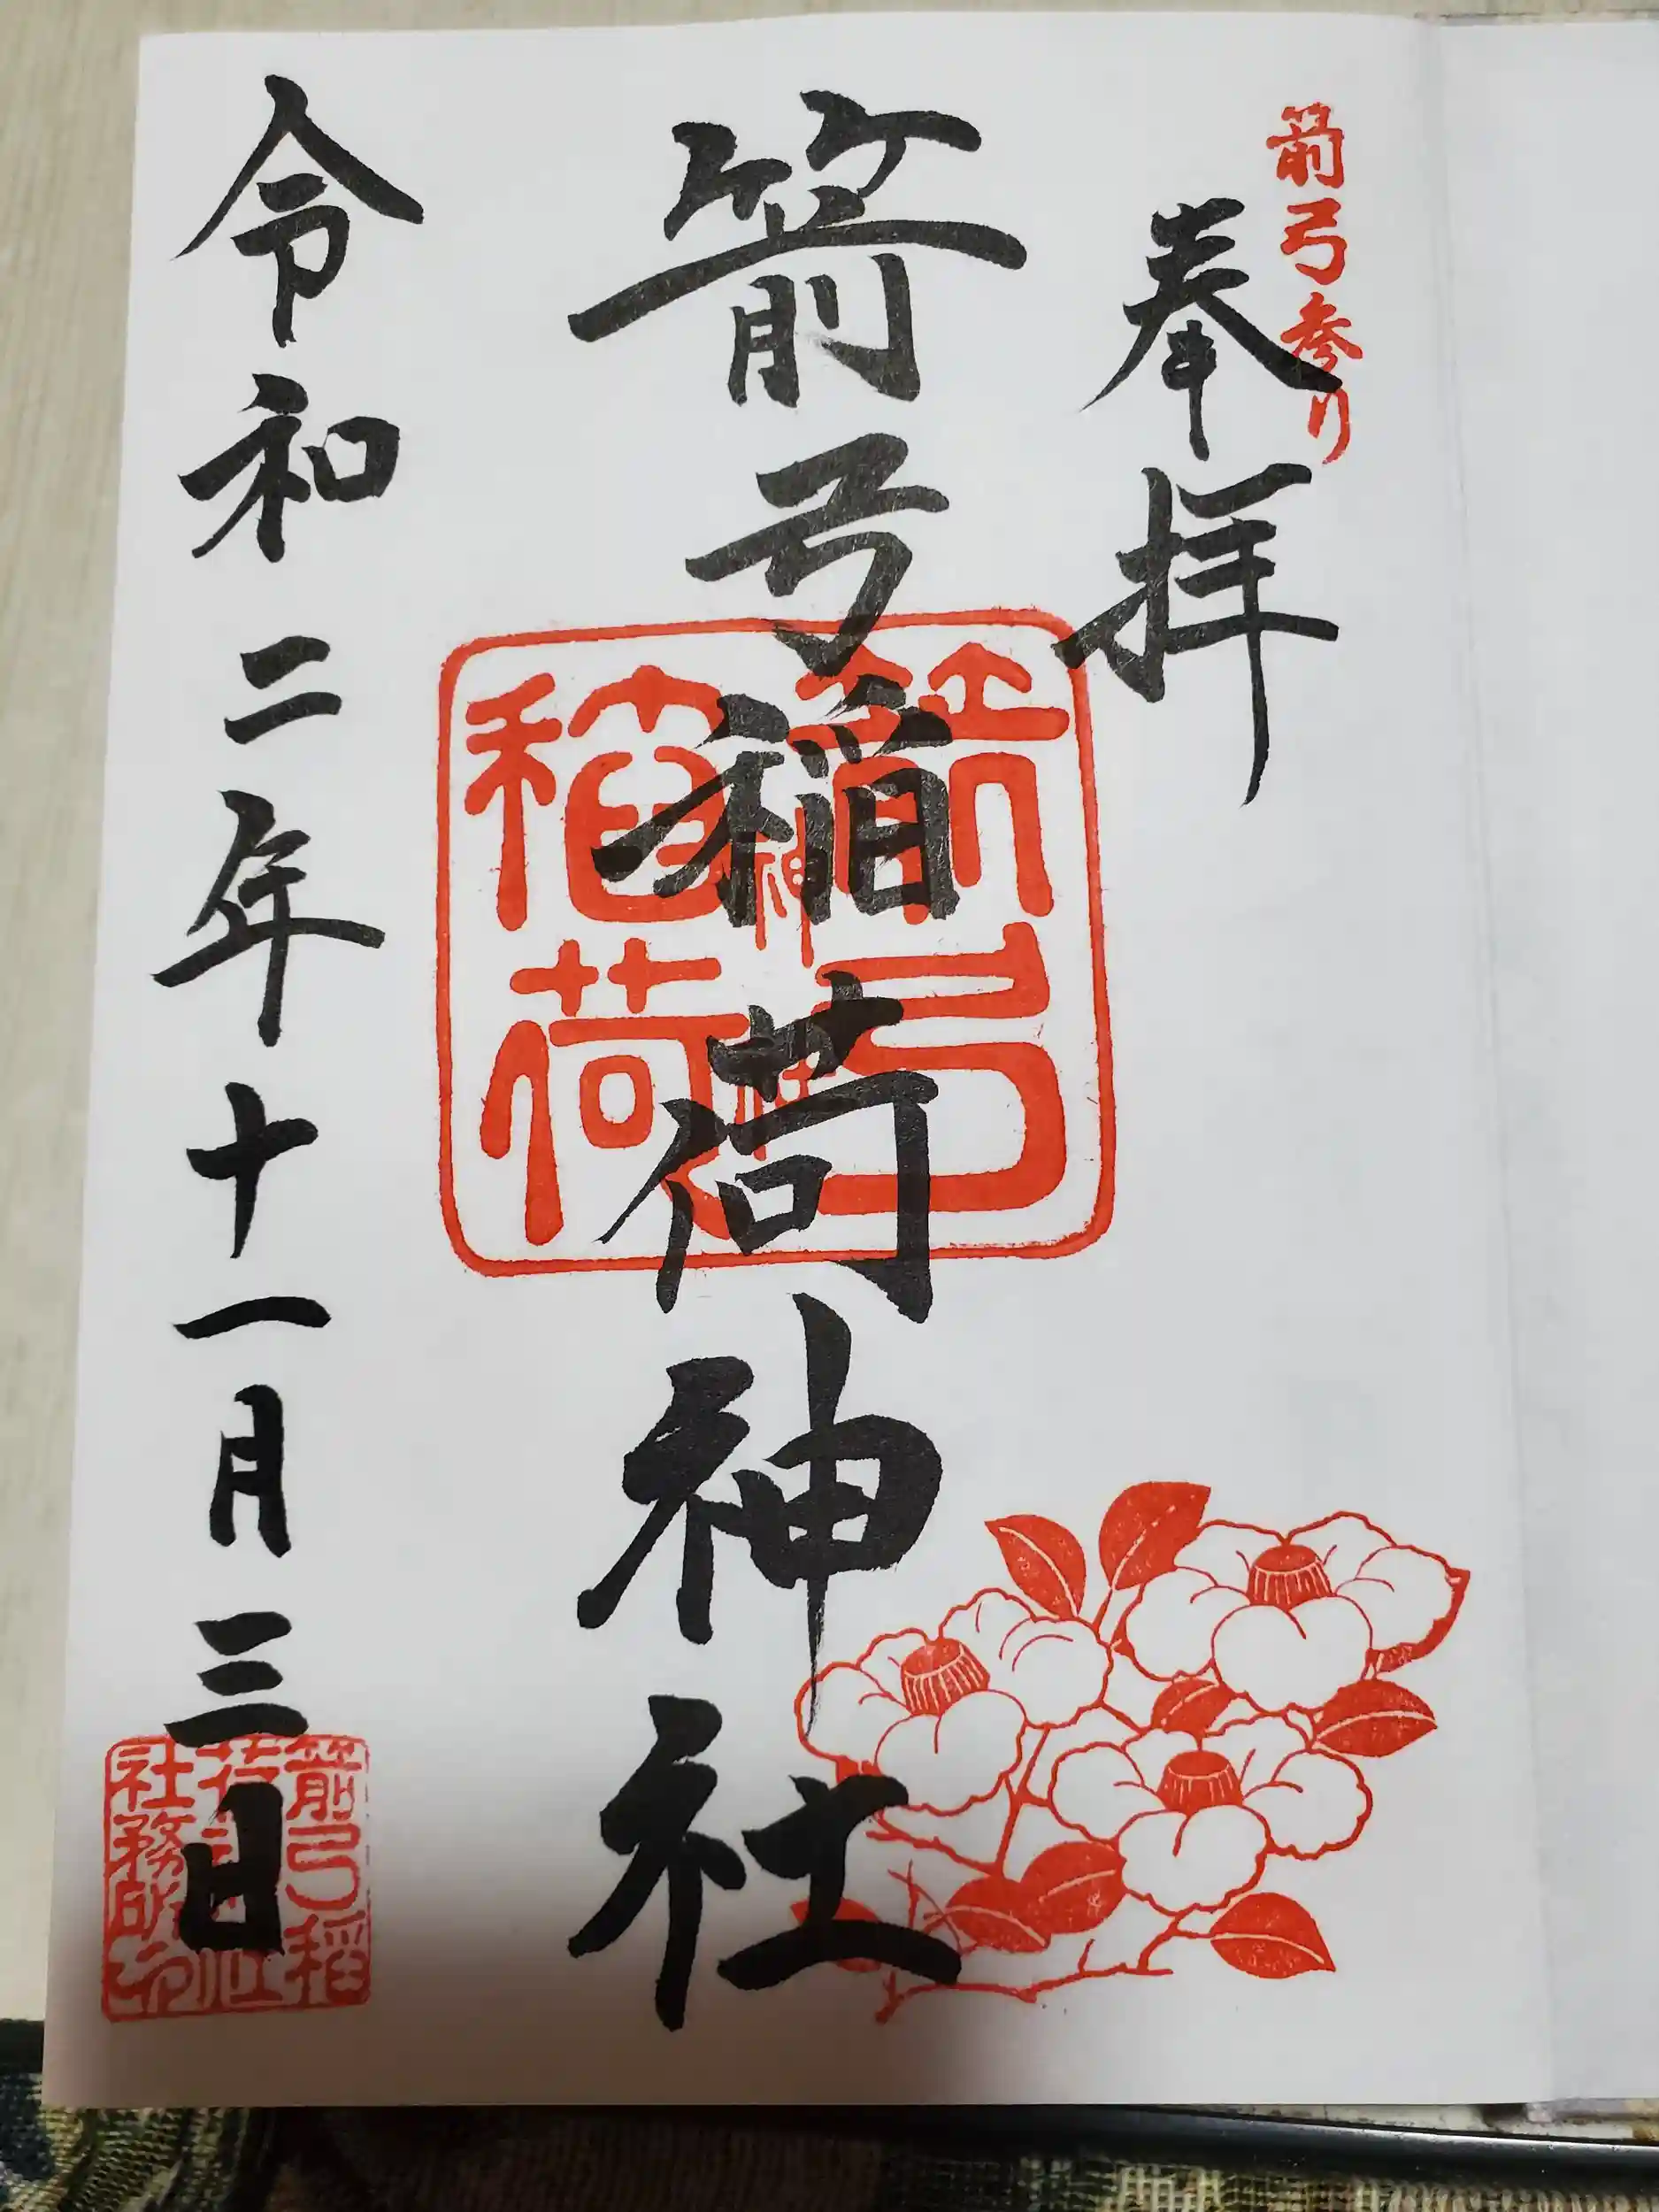 箭弓参り
奉拝
箭弓稲荷神社
箭弓
稲荷
令和二年十一月三日
箭弓稲
社務所之